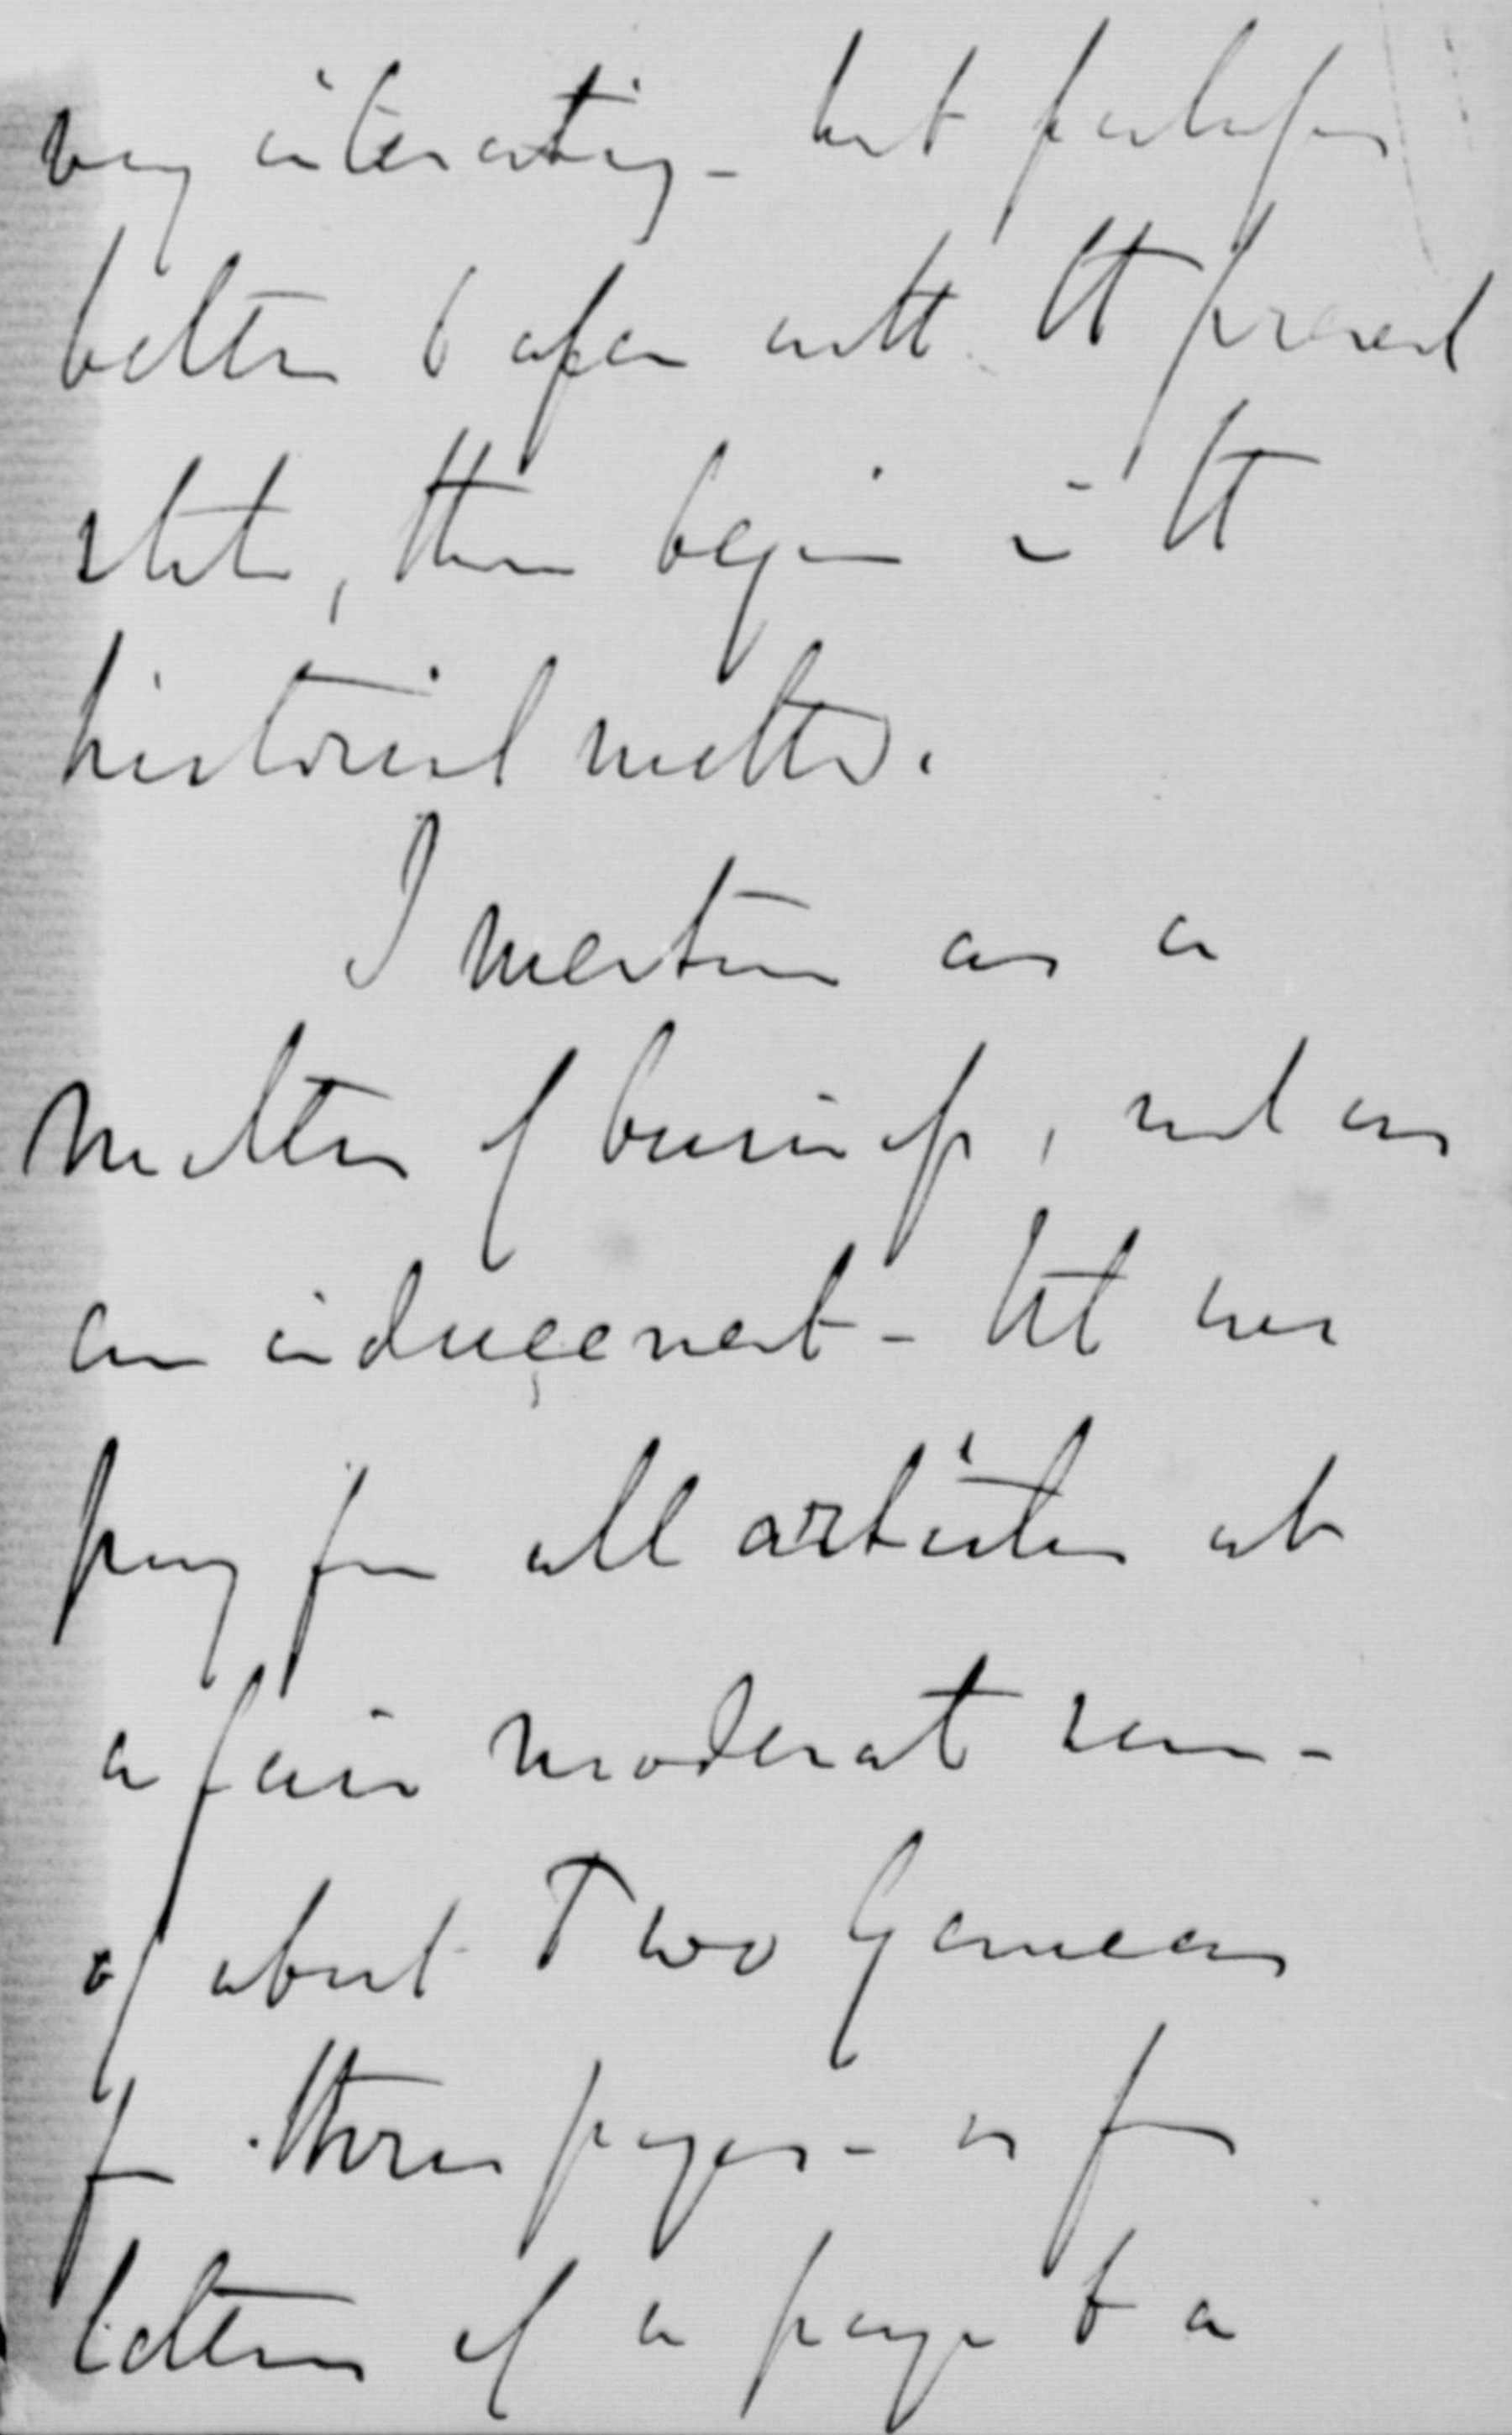 very interesting - but perhaps
better to open with the present
state, then begin in the
historical matter.
I mention as a
matter of business, not as
an inducement - that we
pay for all articles at
a fair moderate sum -
of about Two Guineas
for three pages - or for
letters of a page to a